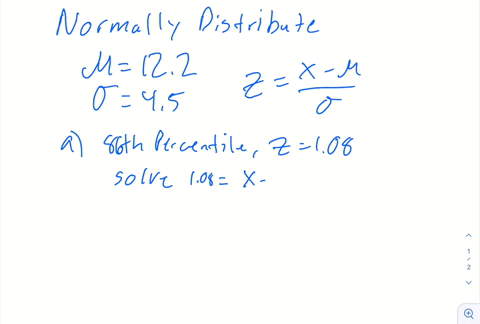 Normally Distribute
μ = 12.2
σ = 4.5
z = (x - μ)/σ
a) 86th Percentile, z = 1.08
solve 1.08 = x -
1
/
2